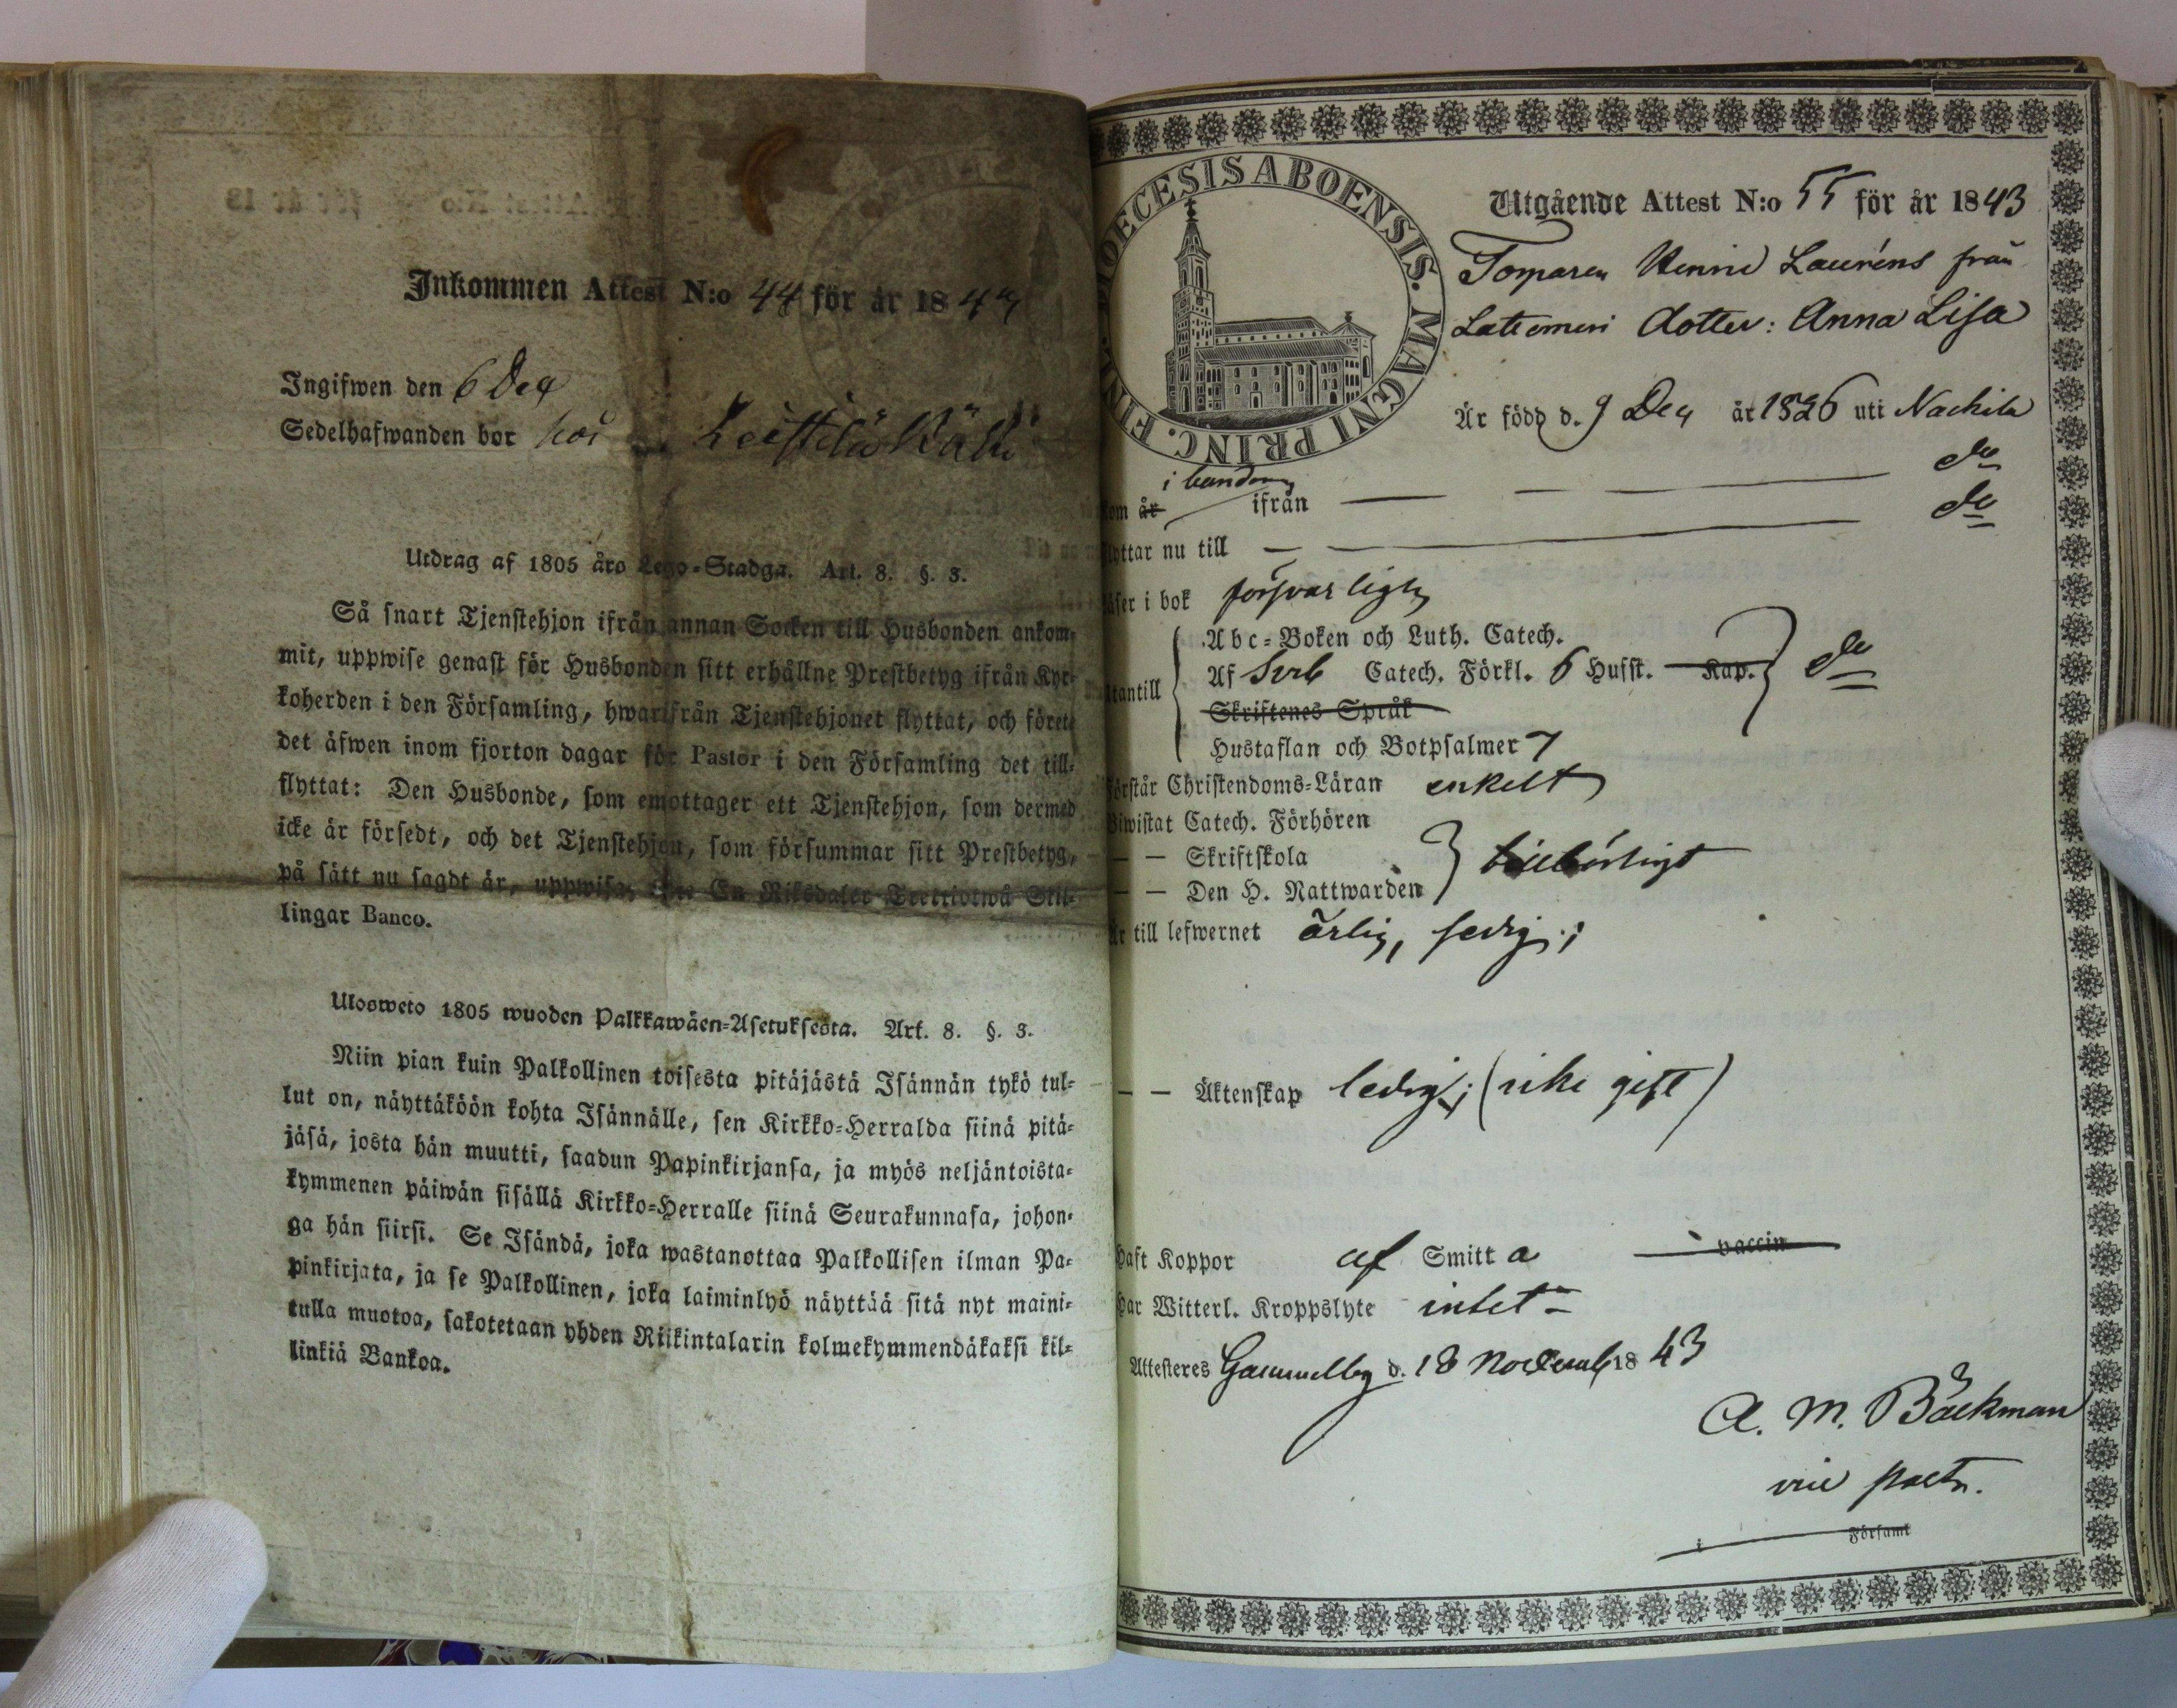 Inkommen Attest N:o 44 för år 184
Ingifwen den 6 Dec
Sedelhafwanden bor hos
Utdrag af 1805 års Lego-Stadga. Art. 8. §. 3.
Så snart Tjenstehjon ifrån annan Socken till Husbonden ankom-
mit, uppwise genast för Husbonden sitt erhållne Prestbetyg ifrån Kyr-
koherden i den Församling, hwarifrån Tjenstehjonet flyttat, och förete
det äfwen inom fjorton dagar för Pastor i den Församling det till-
flyttat: Den Husbonde, som emottager ett Tjenstehjon, som dermed
icke är försedt, och det Tjenstehjon, som försummar sitt Prestbetyg,
på sätt nu sagdt är, uppwisa, En Riksdaler Trettiotwå Skil-
lingar Banco.
Ulosweto 1805 wuoden Palkkawäen-Asetuksesta. Art. 8. §. 3.
Niin pian kuin Palkollinen toisesta pitäjästä Isännän tykö tul-
lut on, näyttäköön kohta Isännälle, sen Kirkko-Herralda siinä pitä-
jäsä, josta hän muutti, saadun Papinkirjansa, ja myös neljäntoista-
kymmenen päiwän sisällä Kirkko-Herralle siinä Seurakunnasa, johon-
ga hän siirsi. Se Isändä, joka wastanottaa Palkollisen ilman Pa-
pinkirjata, ja se Palkollinen, joka laiminlyö näyttää sitä nyt maini-
tulla muotoa, sakotetaan yhden Riikintalarin kolmekymmendäkaksi kil-
linkiä Bankoa.
DIOECESIS ABOENSIS. MAGNI PRINC. FINL.
Utgående Attest N:o 55 för år 1843
Lauréns från
dotter: Anna Lisa
Är född d. 9 Dec år 1826 uti Nackila
i barndom
kom år ifrån do
flyttar nu till do
läser i bok försvarligt
utantill
Abc-Boken och Luth. Catech.
Af Svb Catech. Förkl. 6 Husst. Kap. do
Skriftenes Språk
Hustaflan och Botpsalmer 7
Förstår Christendoms-Läran enkelt
Biwistat Catech. Förhören
— — Skriftskola tillbörligt
— — Den H. Nattwarden
Är till lefwernet ärlig, sedig;
— — Äktenskap ledig; (icke gift)
Haft Koppor af Smitta vaccin
Har Witterl. Kroppslyte intet
Attesteres Gammelby d. 18 Novemb 1843
A. M. Bäckman
vice past.
i Församl